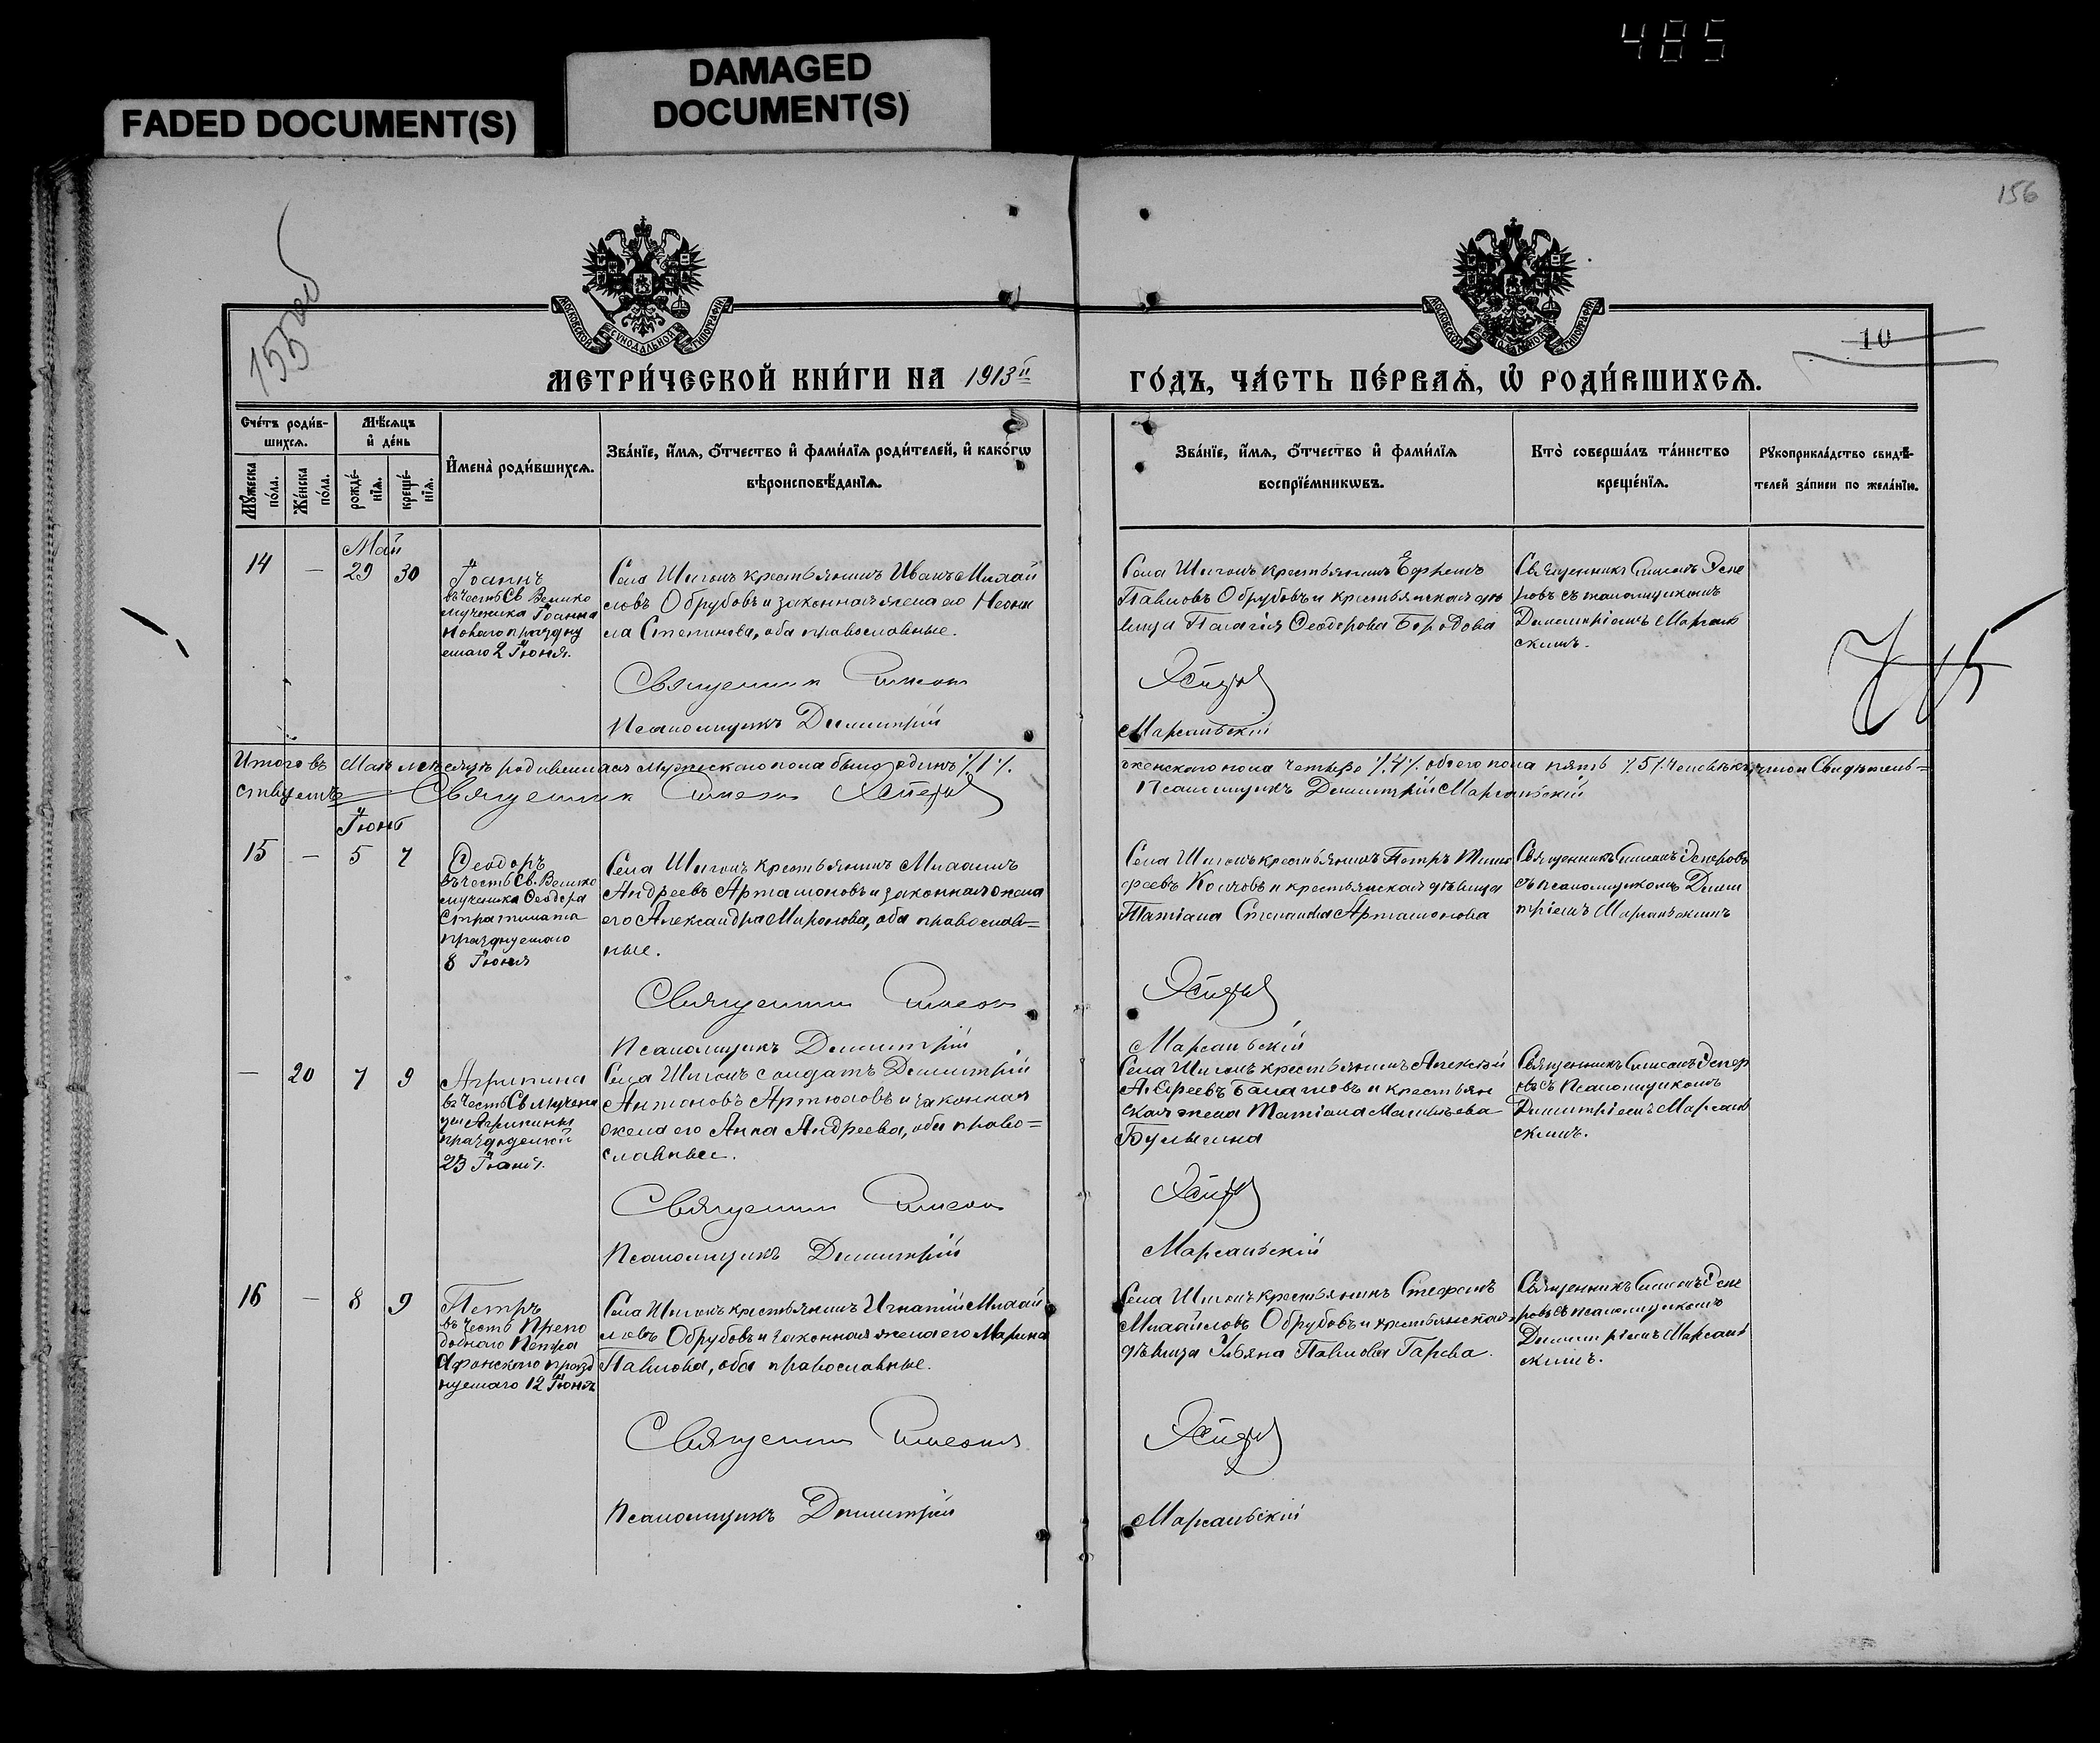 485
FADED DOCUMENT(S)
DAMAGED
DOCUMENT(S)
156
155об
10
МОСКОВСКОЙ СУНОДАЛЬНОЙ ТИПОГРАФІИ
МОСКОВСКОЙ СУНОДАЛЬНОЙ ТИПОГРАФІИ
МЕТРИ́ЧЕСКОЙ КНИ́ГИ НА 1913й ГО́ДЪ, ЧА́СТЬ ПЕ́РВАѦ, Ѽ РОДИ́ВШИХСѦ.
Сче́тъ роди́в-
шихсѧ.
Мꙋ́жеска
по́ла.
Же́нска
по́ла.
Мѣ́сѧцъ
и҆ де́нь
рожде́-
нїѧ.
креще́-
нїѧ.
И҆мена̀ роди́вшихсѧ.
Зва́нїе, и҆́мѧ, ѻ҆́тчество и҆ фами́лїѧ роди́телей, и҆ како́гѡ
вѣроисповѣ́данїѧ.
Зва́нїе, и҆́мѧ, ѻ҆́тчество и҆ фами́лїѧ
воспрїе́мникѡвъ.
Кто̀ соверша́лъ та́инство
креще́нїѧ.
Рꙋкоприкла́дство свидѣ́-
телей за́писи по жела́нїю.
Май
14 — 29 30
Іоаннъ
въ честь Св. Велико
мученика Іоанна
Новаго праздну
емаго 2 Іюня.
Села Шигонъ крестьянинъ Иванъ Михай
ловъ Обрубовъ и законная жена его Неони
ла Степанова, оба православные.
Священникъ Симеонъ
Псаломщикъ Димитрій
Села Шигонъ крестьянинъ Ефремъ
Павловъ Обрубовъ и крестьянская дѣ
вица Пелагія Ѳеодорова Бородова
Марсальскій
Священникъ Симеонъ Эспе
ровъ съ псаломщикомъ
Димитріемъ Марсаль
скимъ.
Итого въ Маѣ мѣсяцѣ родившихся мужескаго пола было одинъ /.1/. женскаго пола четыре /.4/. обоего пола пять /.5/. человѣкъ, въ чемъ и свидѣтель=
ствуемъ Священникъ Симеонъ Эсперовъ Псаломщикъ Димитрій Марсальскій
Іюнь
15 — 5 7
Ѳеодоръ
въ честь Св. Велико
мученика Ѳеодора
Стратилата
празднуемаго
8 Іюня
Села Шигонъ крестьянинъ Михаилъ
Андреевъ Артамоновъ и законная жена
его Александра Миронова, оба православ=
ные.
Священникъ Симеонъ
Псаломщикъ Димитрій
Села Шигонъ крестьянинъ Петръ Тимо
феевъ и крестьянская дѣвица
Татіана Степанова Артамонова
Марсальскій
Священникъ Симеонъ Эсперовъ
съ псаломщикомъ Дими
тріемъ Марсальскимъ
— 20 7 9
Агрипина
въ честь Св. мучени
цы Агрипины
празднуемой
23 Іюня.
Села Шигонъ солдатъ Димитрій
Антоновъ Артюховъ и законная
жена его Анна Андреева, оба право=
славные.
Священникъ Симеонъ
Псаломщикъ Димитрій
Села Шигонъ крестьянинъ Алексѣй
Андреевъ Балашовъ и крестьян
ская жена Татіана
Булыгина
Марсальскій
Священникъ Симеонъ Эспер
овъ съ Псаломщикомъ
Димитріемъ Марсаль
скимъ.
16 — 8 9
Петръ
въ честь Препо
добнаго Петра
Афонскаго празд
нуемаго 12 Іюня
Села Шигонъ крестьянинъ Игнатій Михай
ловъ Обрубовъ и законная жена его Марина
Павлова, оба православные.
Священникъ Симеонъ
Псаломщикъ Димитрій
Села Шигонъ крестьянинъ Стефанъ
Михайловъ Обрубовъ и крестьянская
дѣвица Павлова
Марсальскій
Священникъ Симеонъ Эспе
ровъ съ псаломщикомъ
Димитріемъ Марсаль
скимъ.